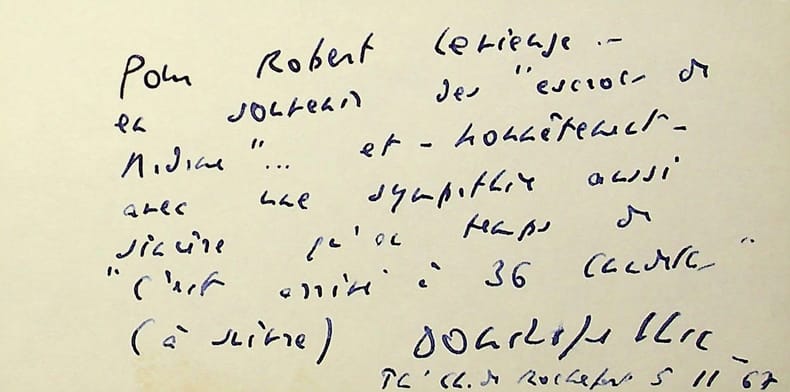 Pour Robert
en souvenir des "escrocs de
"... et - honnêtement -
avec une sympathie aussi
sincère qu'au temps de
"C'est arrivé à 36 chandelles"
(à suivre)
Th' Ch. de Rochefort 5 11 67